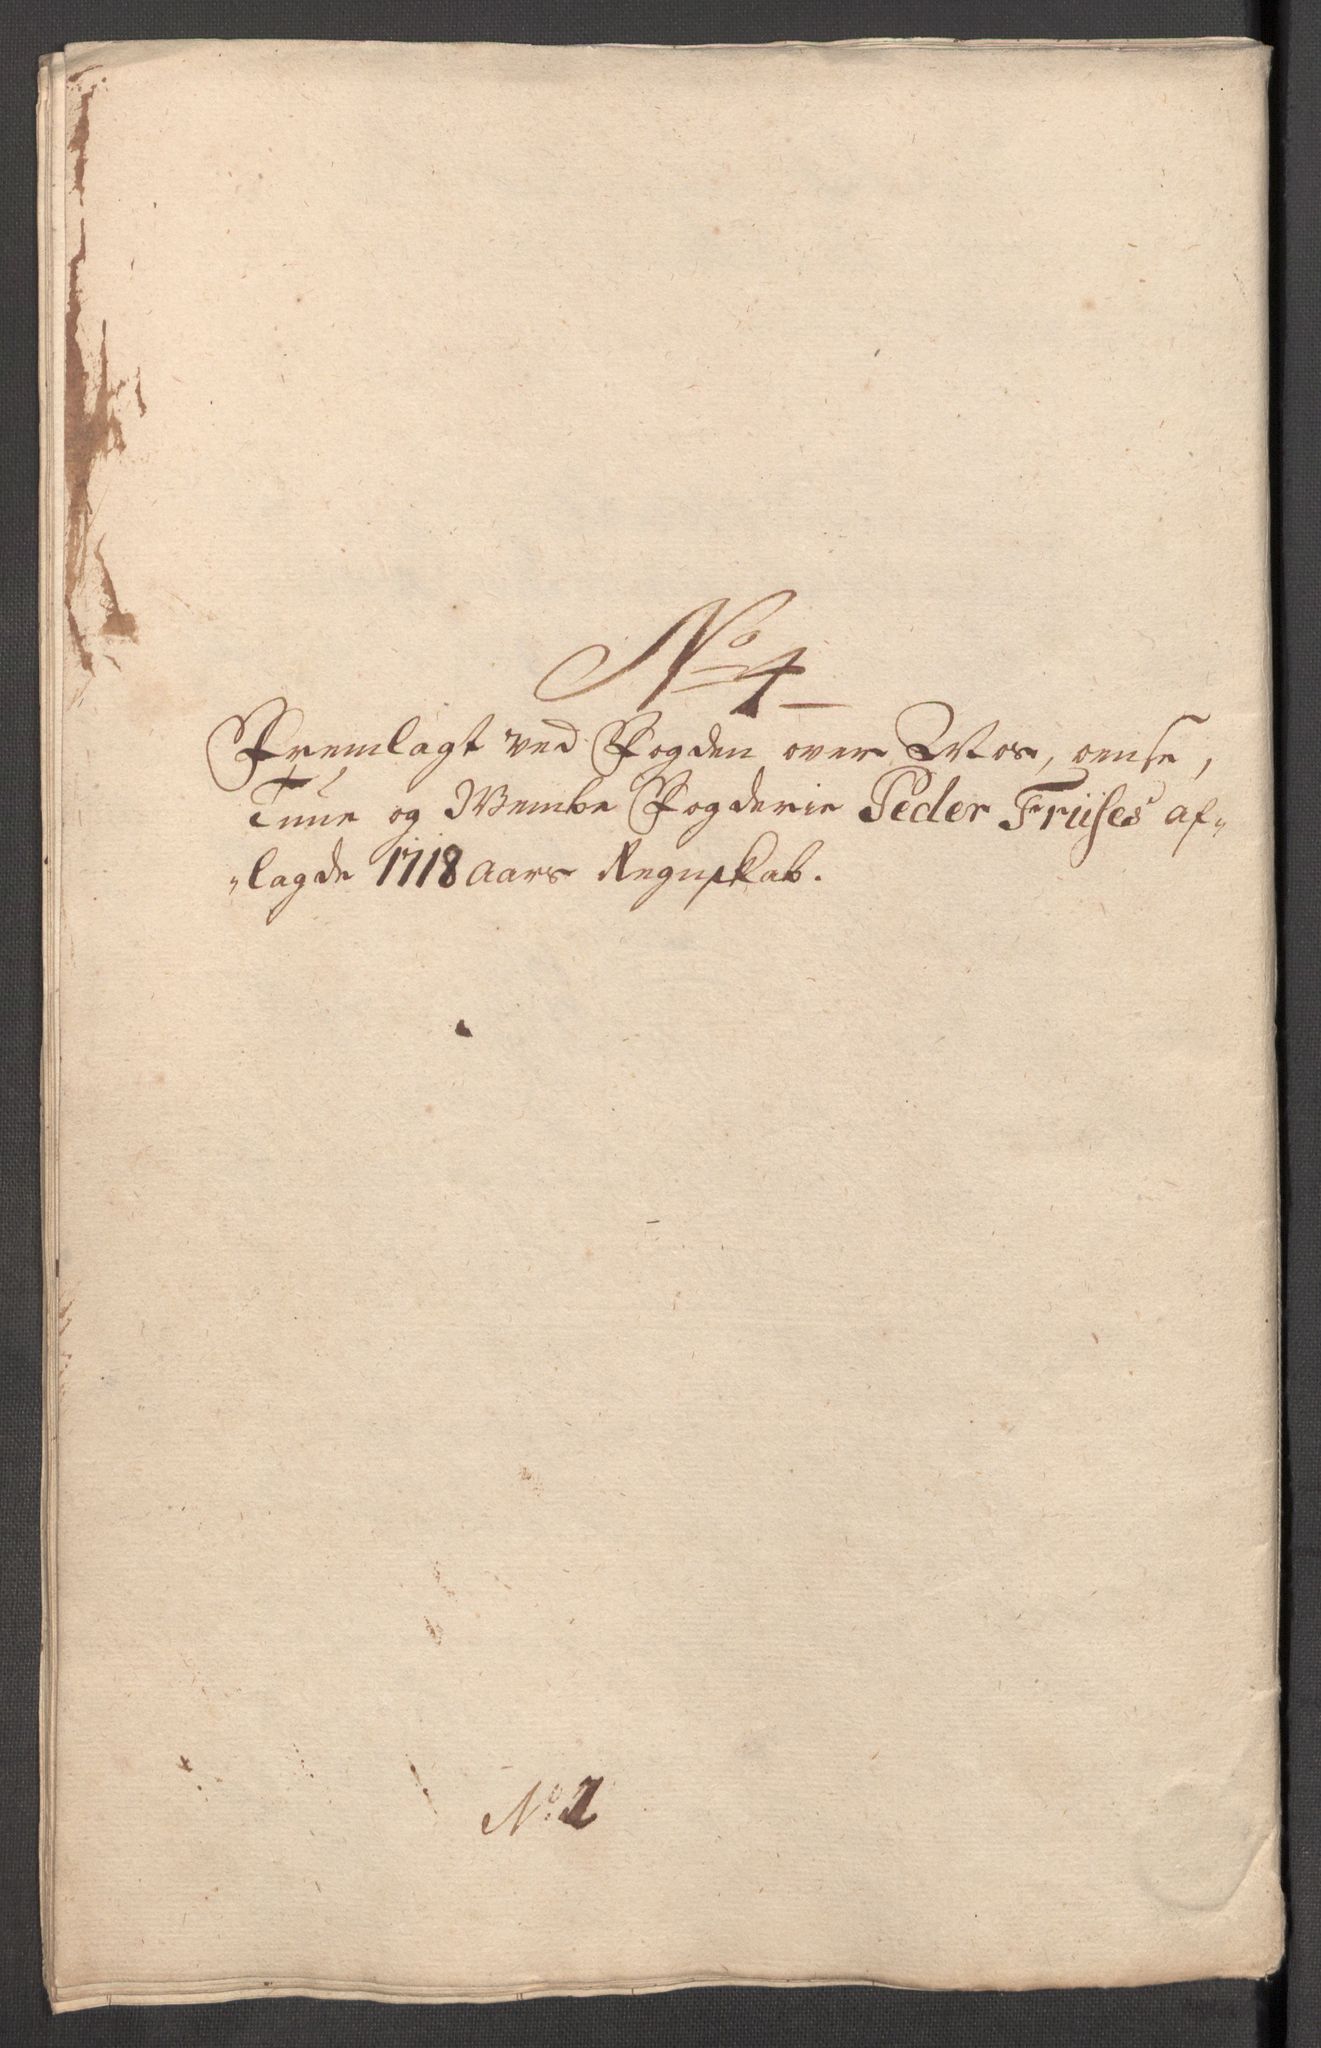 No 4
Fremlagt ved Fogden over Mos, oense,
Tune og Wembe Fogderie Peder Friises af-
lagde 1718 Aars Regnskab.
No: 2